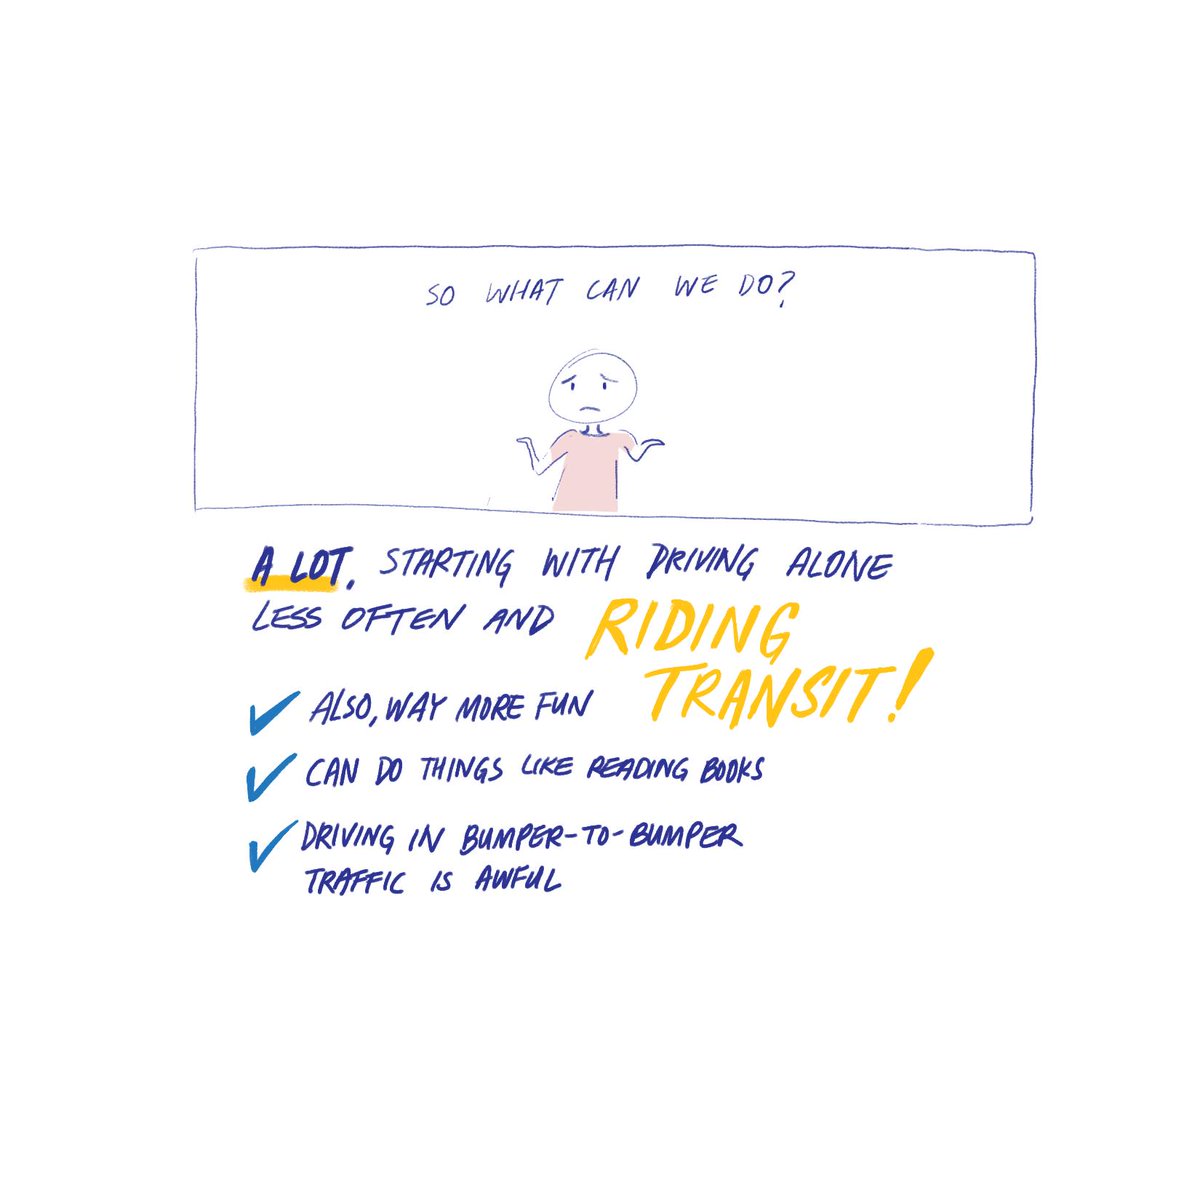 SO WHAT CAN WE DO?
A LOT, STARTING WITH DRIVING ALONE
LESS OFTEN AND RIDING
TRANSIT!
ALSO, WAY MORE FUN
CAN DO THINGS LIKE READING BOOKS
DRIVING IN BUMPER-TO-BUMPER
TRAFFIC IS AWFUL